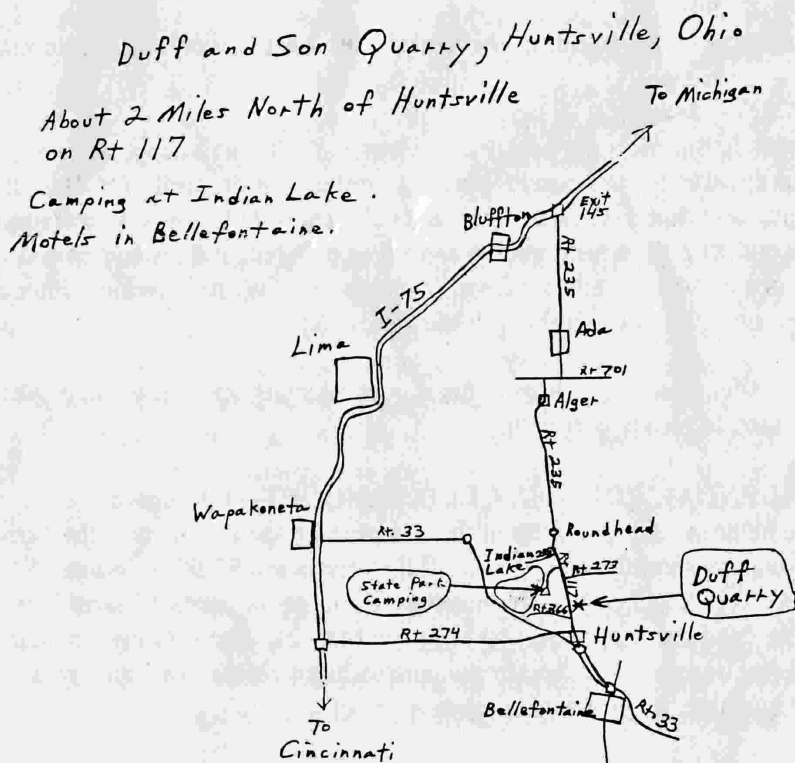 Duff and Son Quarry, Huntsville, Ohio
About 2 Miles North of Huntsville
on Rt 117
To Michigan
Camping at Indian Lake.
Motels in Bellefontaine.
Exit
145
Bluffton
Rt 235
I-75
Ada
Lima
Rt 701
Alger
Rt 235
Wapakoneta
Rt. 33
Roundhead
Indian
Lake
Rt 273
Rt 117
State Park
Camping
Rt 366
Duff
Quarry
Rt 274
Huntsville
Bellefontaine
Rt. 33
To
Cincinnati